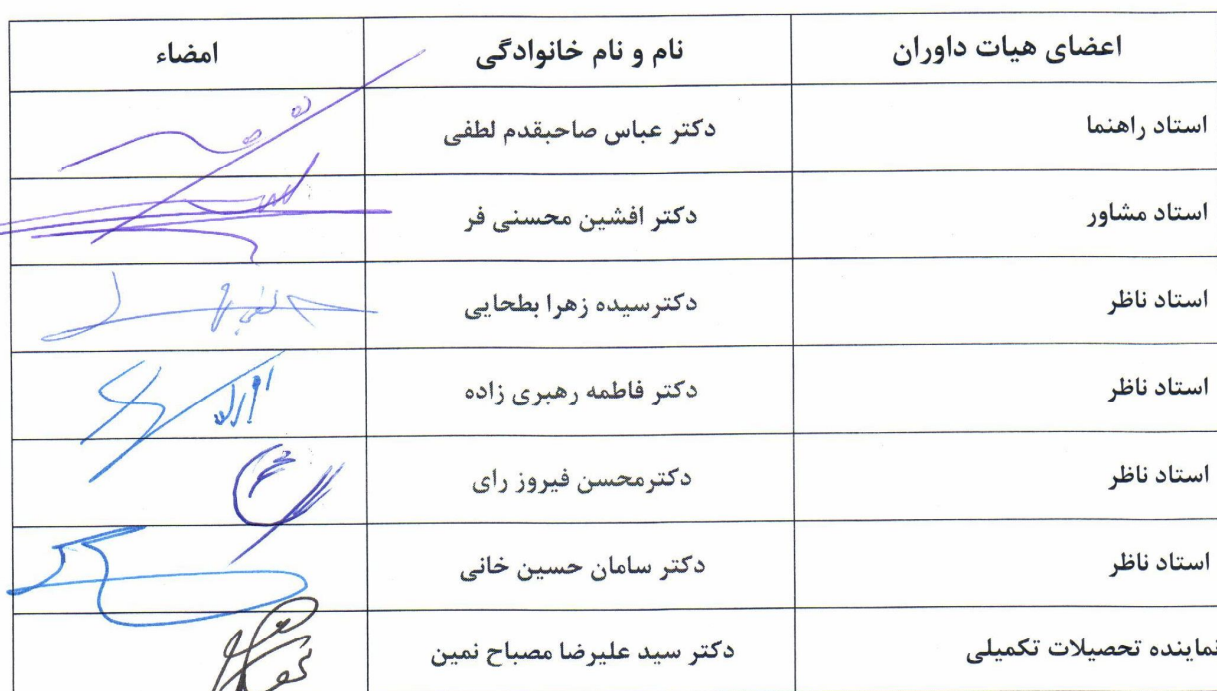 اعضای هیات داوران نام و نام خانوادگی امضاء
استاد راهنما دکتر عباس صاحبقدم لطفی
استاد مشاور دکتر افشین محسنی فر
استاد ناظر دکترسیده زهرا بطحایی
استاد ناظر دکتر فاطمه رهبری زاده
استاد ناظر دکترمحسن فیروز رای
استاد ناظر دکتر سامان حسین خانی
نماینده تحصیلات تکمیلی دکتر سید علیرضا مصباح نمین